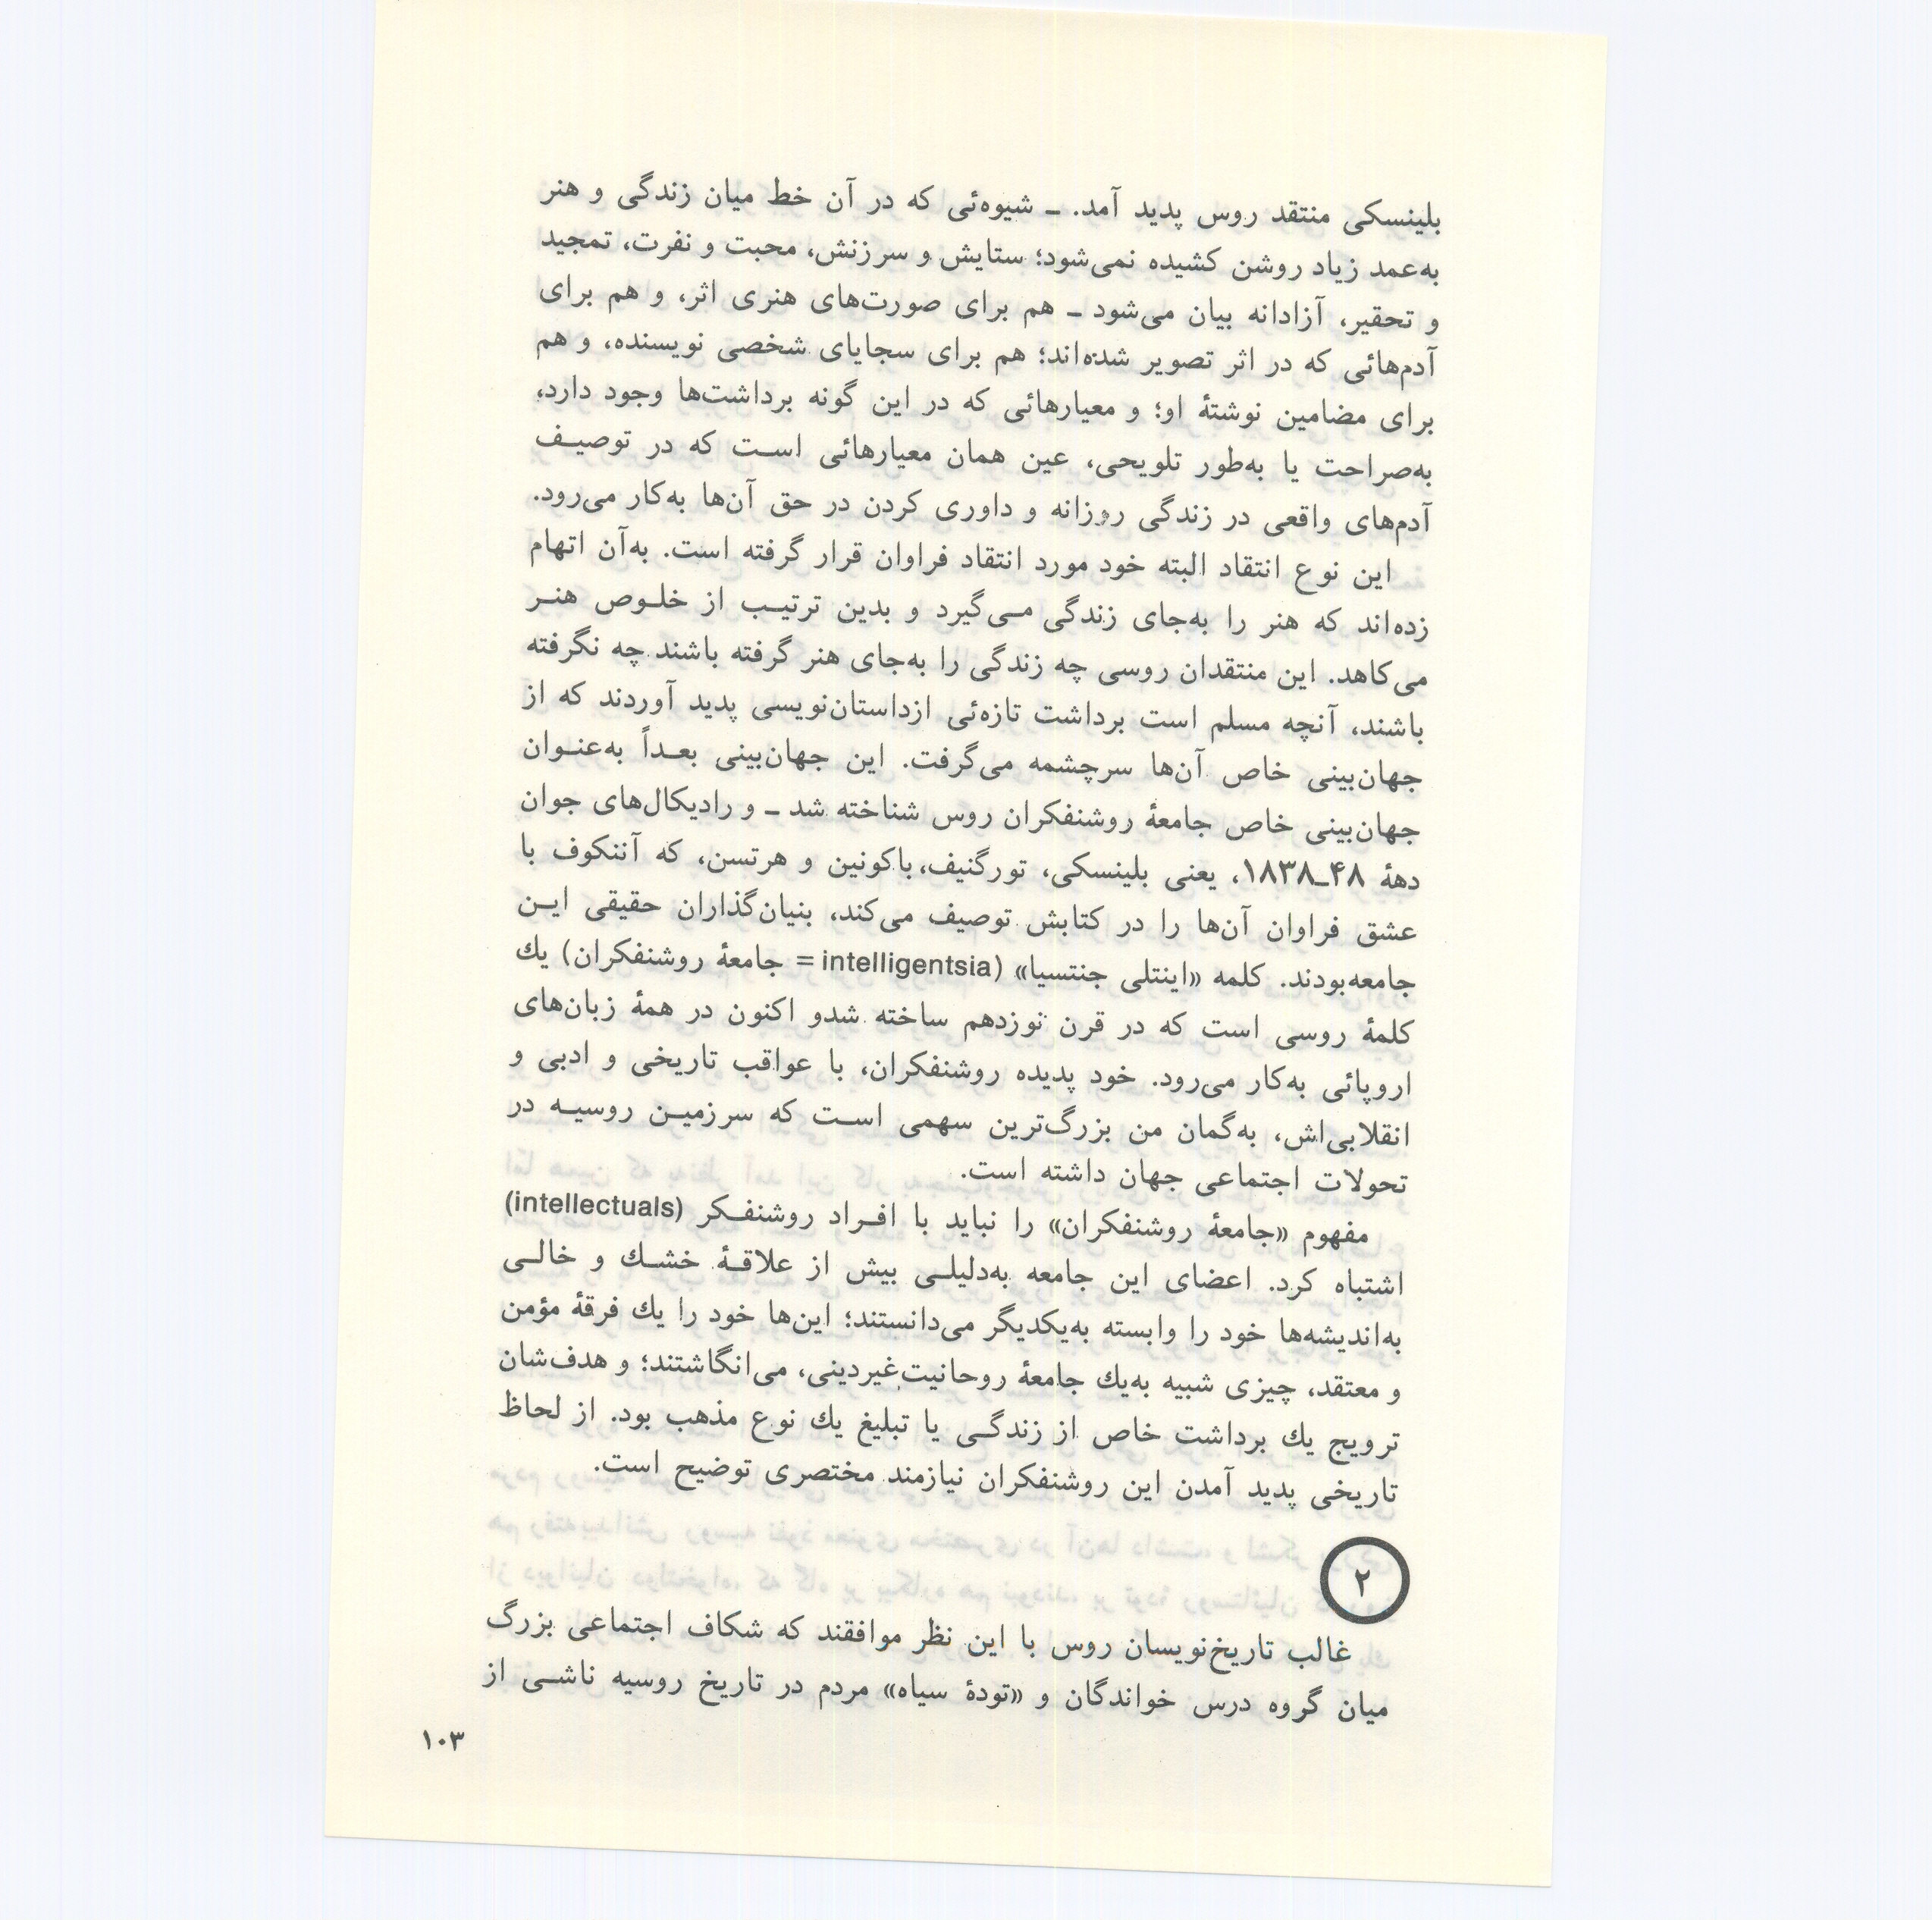 بلینسکی منتقد روس پدید آمد. ـ شیوه‌ئی که در آن خط میان زندگی و هنر
به‌عمد زیاد روشن کشیده نمی‌شود؛ ستایش و سرزنش، محبت و نفرت، تمجید
و تحقیر، آزادانه بیان می‌شود ـ هم برای صورت‌های هنری اثر، و هم برای
آدم‌هائی که در اثر تصویر شده‌اند؛ هم برای سجایای شخصی نویسنده، و هم
برای مضامین نوشتهٔ او؛ و معیارهائی که در این گونه برداشت‌ها وجود دارد،
به‌صراحت یا به‌طور تلویحی، عین همان معیارهائی است که در توصیف
آدم‌های واقعی در زندگی روزانه و داوری کردن در حق آن‌ها به‌کار می‌رود.
این نوع انتقاد البته خود مورد انتقاد فراوان قرار گرفته است. به‌آن اتهام
زده‌اند که هنر را به‌جای زندگی می‌گیرد و بدین ترتیب از خلوص هنر
می‌کاهد. این منتقدان روسی چه زندگی را به‌جای هنر گرفته باشند چه نگرفته
باشند، آنچه مسلم است برداشت تازه‌ئی ازداستان‌نویسی پدید آوردند که از
جهان‌بینی خاص آن‌ها سرچشمه می‌گرفت. این جهان‌بینی بعداً به‌عنوان
جهان‌بینی خاص جامعهٔ روشنفکران روس شناخته شد ـ و رادیکال‌های جوان
دههٔ ۴۸ـ۱۸۳۸، یعنی بلینسکی، تورگنیف، باکونین و هرتسن، که آننکوف با
عشق فراوان آن‌ها را در کتابش توصیف می‌کند، بنیان‌گذاران حقیقی این
جامعه‌بودند. کلمه «اینتلی جنتسیا» (intelligentsia = جامعهٔ روشنفکران) یك
کلمهٔ روسی است که در قرن نوزدهم ساخته شدو اکنون در همهٔ زبان‌های
اروپائی به‌کار می‌رود. خود پدیده روشنفکران، با عواقب تاریخی و ادبی و
انقلابی‌اش، به‌گمان من بزرگ‌ترین سهمی است که سرزمین روسیه در
تحولات اجتماعی جهان داشته است.
مفهوم «جامعهٔ روشنفکران» را نباید با افراد روشنفکر (intellectuals)
اشتباه کرد. اعضای این جامعه به‌دلیلی بیش از علاقهٔ خشك و خالی
به‌اندیشه‌ها خود را وابسته به‌یکدیگر می‌دانستند؛ این‌ها خود را یك فرقهٔ مؤمن
و معتقد، چیزی شبیه به‌یك جامعهٔ روحانیت غیردینی، می‌انگاشتند؛ و هدف‌شان
ترویج یك برداشت خاص از زندگی یا تبلیغ یك نوع مذهب بود. از لحاظ
تاریخی پدید آمدن این روشنفکران نیازمند مختصری توضیح است.
۲
غالب تاریخ‌نویسان روس با این نظر موافقند که شکاف اجتماعی بزرگ
میان گروه درس خواندگان و «تودهٔ سیاه» مردم در تاریخ روسیه ناشی از
۱۰۳